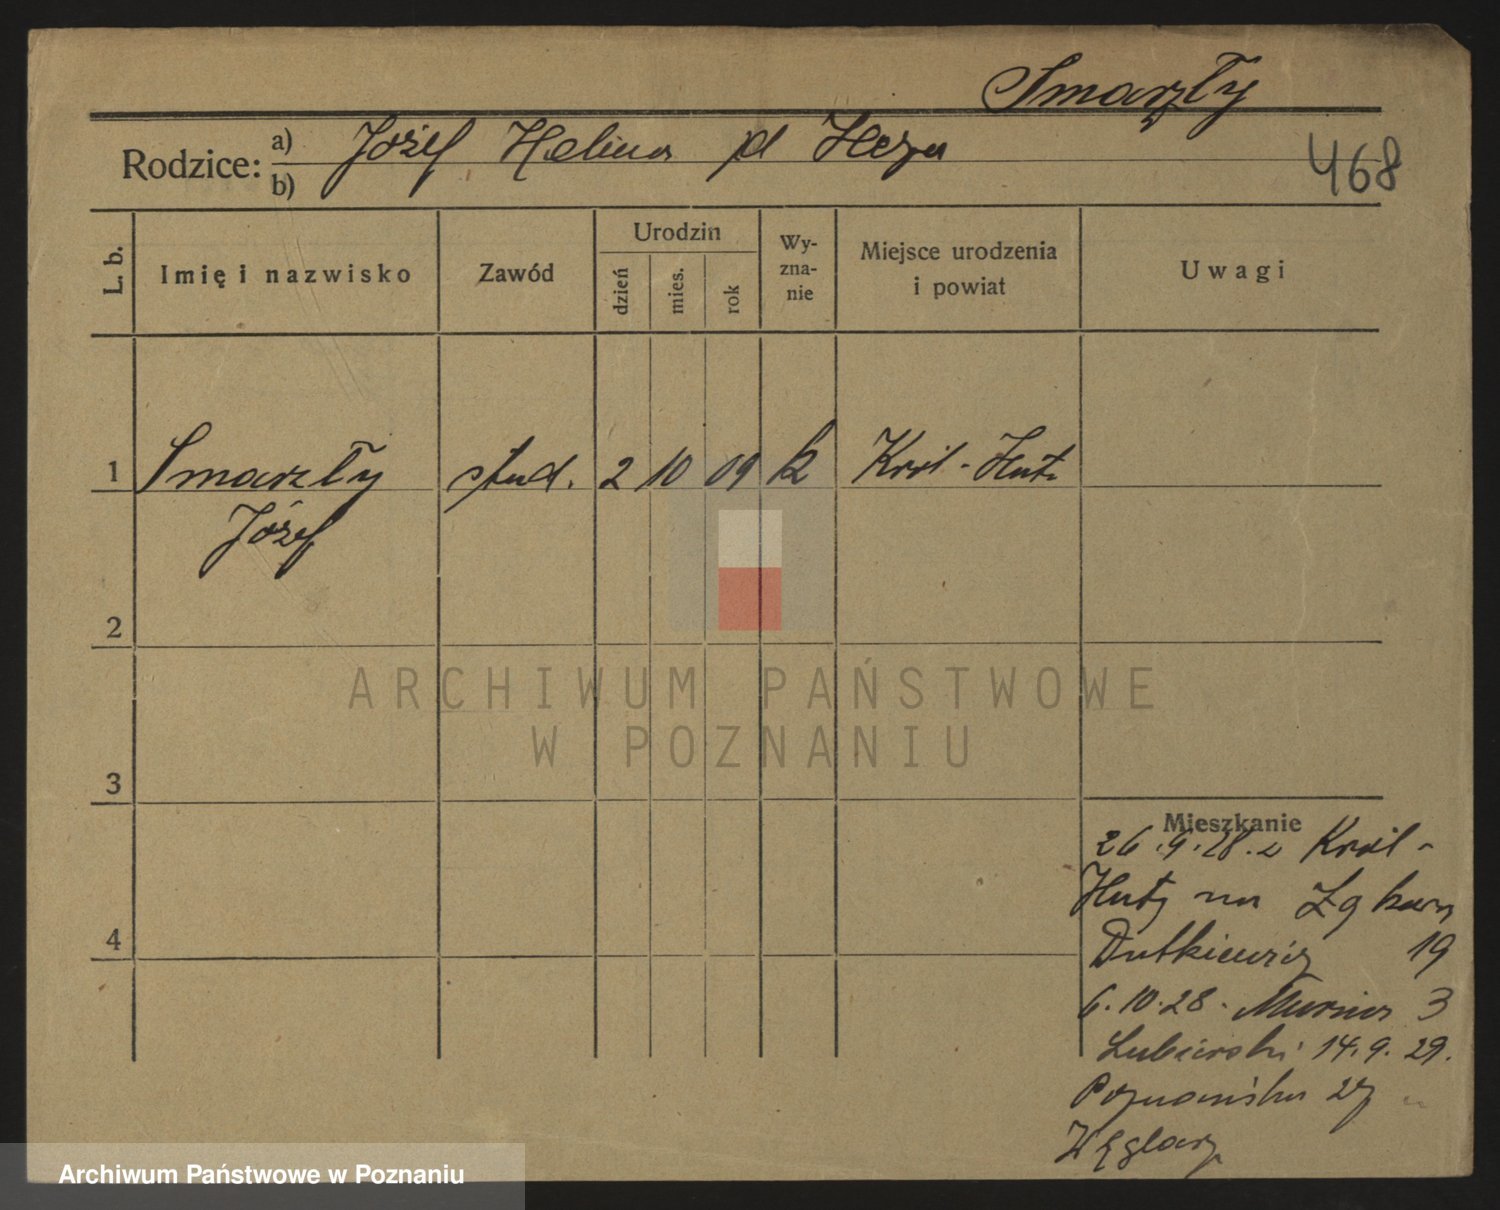 Smarzły
Rodzice: a) Józef Helena
b)
468
L. b. Imię i nazwisko Zawód Urodzin dzień mies. rok Wy-zna-nie Miejsce urodzenia i powiat Uwagi
1 Smarzły stud. 2 10 09 k Król-Huta
Józef
2
3
4
Mieszkanie
26.9.28. z Król-
Huty na
Dutkiewicz 19
6.10.28. 3
14.9.29.
Poznańska
Węglarz
ARCHIWUM PAŃSTWOWE
W POZNANIU
Archiwum Państwowe w Poznaniu